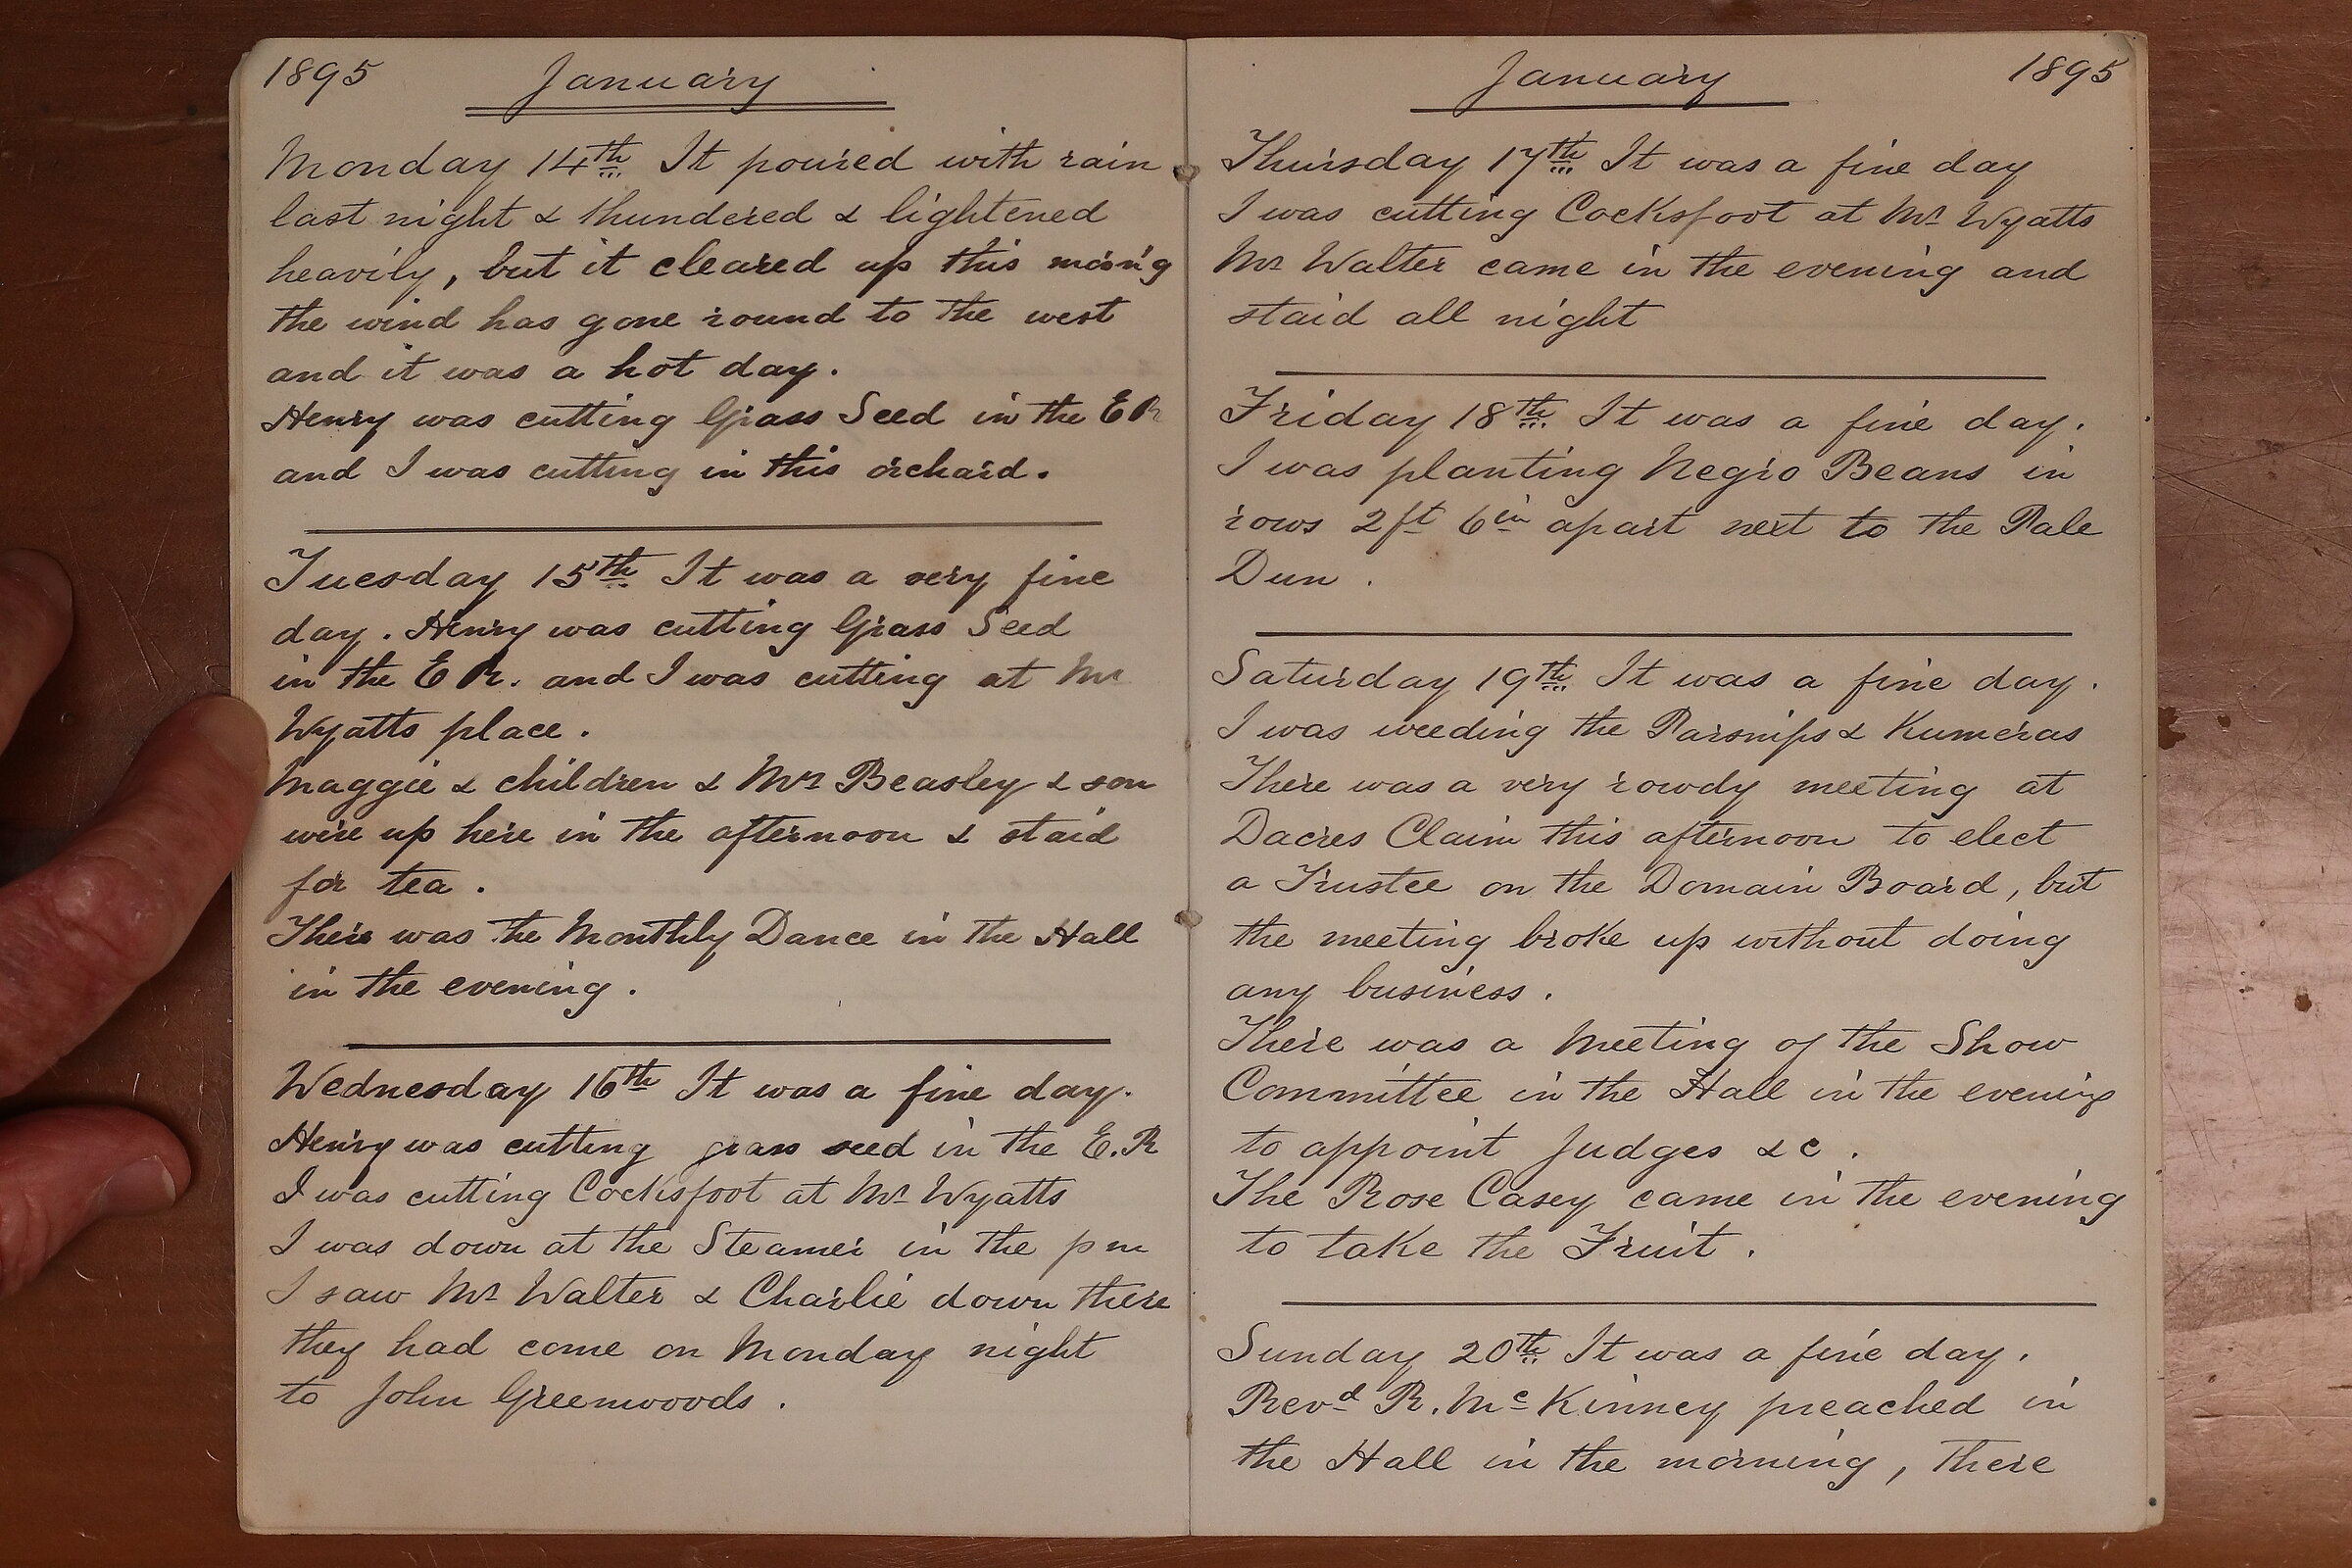 1895 January
Monday 14th It poured with rain
last night & thundered & lightened
heavily, but it cleared up this morn'g
the wind has gone round to the west
and it was a hot day.
Henry was cutting Grass Seed in the E R
and I was cutting in this orchard.
Tuesday 15th It was a very fine
day. Henry was cutting Grass Seed
in the E R. and I was cutting at Mr
Wyatts place.
Maggie & children & Mrs Beasley & son
were up here in the afternoon & staid
for tea.
There was the Monthly Dance in the Hall
in the evening.
Wednesday 16th It was a fine day.
Henry was cutting grass seed in the E.R
I was cutting Cocksfoot at Mr Wyatts
I was down at the Steamer in the pm
I saw Mr Walter & Charlie down there
they had come on Monday night
to John Greenwoods.
January 1895
Thursday 17th It was a fine day
I was cutting Cocksfoot at Mr Wyatts
Mr Walter came in the evening and
staid all night
Friday 18th It was a fine day.
I was planting Negro Beans in
rows 2ft 6in apart next to the Pale
Dun.
Saturday 19th It was a fine day.
I was weeding the Parsnips & Kumeras
There was a very rowdy meeting at
Dacres Claim this afternoon to elect
a Trustee on the Domain Board, but
the meeting broke up without doing
any business.
There was a Meeting of the Show
Committee in the Hall in the evening
to appoint Judges &c.
The Rose Casey came in the evening
to take the Fruit.
Sunday 20th It was a fine day.
Revd R. McKinney preached in
the Hall in the morning, There